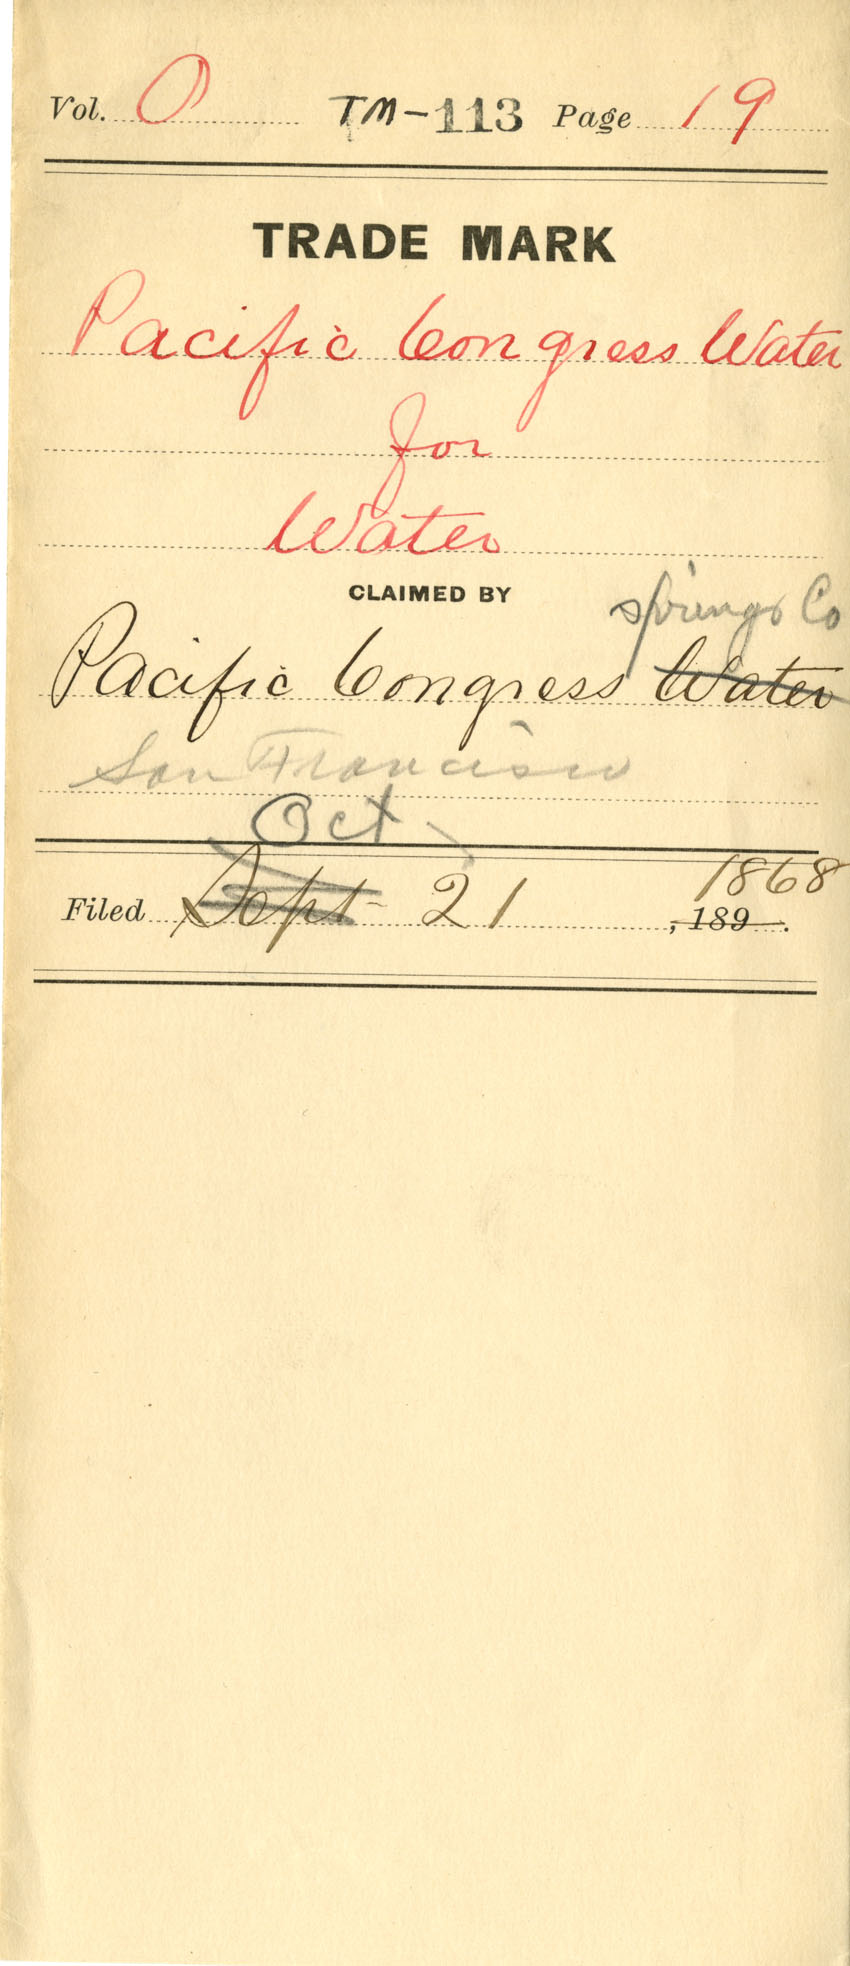 Vol. O TM-113 Page 19
TRADE MARK
Pacific Congress Water
for
Water
CLAIMED BY
Springs Co
Pacific Congress Water
San Francisco
Oct
Filed Sept 21 1868
, 189 .